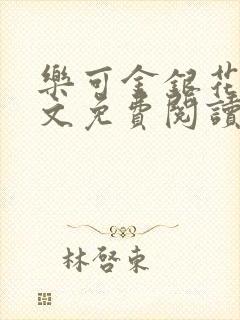 樂可金銀花
文免費閱讀
林啓東